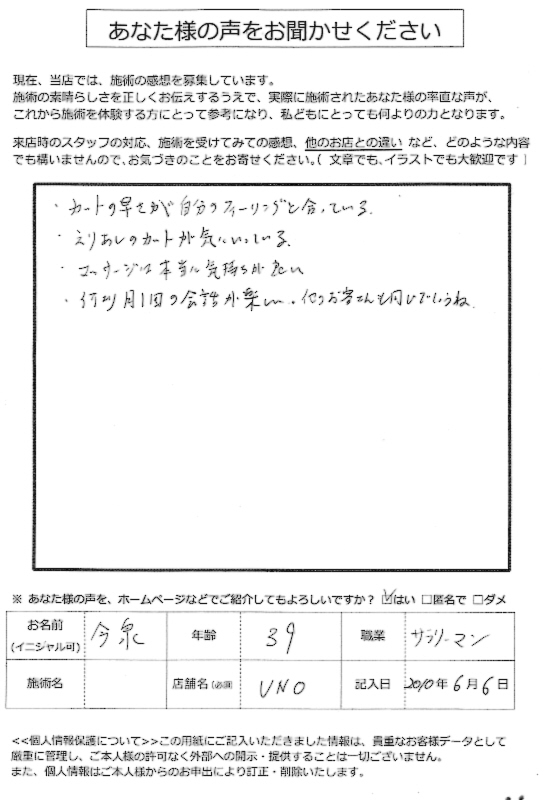 あなた様の声をお聞かせください
現在、当店では、施術の感想を募集しています。
施術の素晴らしさを正しくお伝えするうえで、実際に施術されたあなた様の率直な声が、
これから施術を体験する方にとって参考になり、私どもにとっても何よりの力となります。
来店時のスタッフの対応、施術を受けてみての感想、他のお店との違い など、どのような内容
でも構いませんので、お気づきのことをお寄せください。( 文章でも、イラストでも大歓迎です )
・カートの早さが自分のフィーリングと合っている。
・えりあしのカートが気にいっている。
・マッサージは本当に気持ちが良い
・何か月1回の会話が楽しい。他のお客さんも同じでしょうね。
※ あなた様の声を、ホームページなどでご紹介してもよろしいですか？ ☑はい □匿名で □ダメ
お名前 今泉 年齢 39 職業 サラリーマン
(イニシャル可)
施術名 店舗名(必須) UNO 記入日 2010年6月6日
<<個人情報保護について>>この用紙にご記入いただきました情報は、貴重なお客様データとして
厳重に管理し、ご本人様の許可なく外部への開示・提供することは一切ございません。
また、個人情報はご本人様からのお申出により訂正・削除いたします。